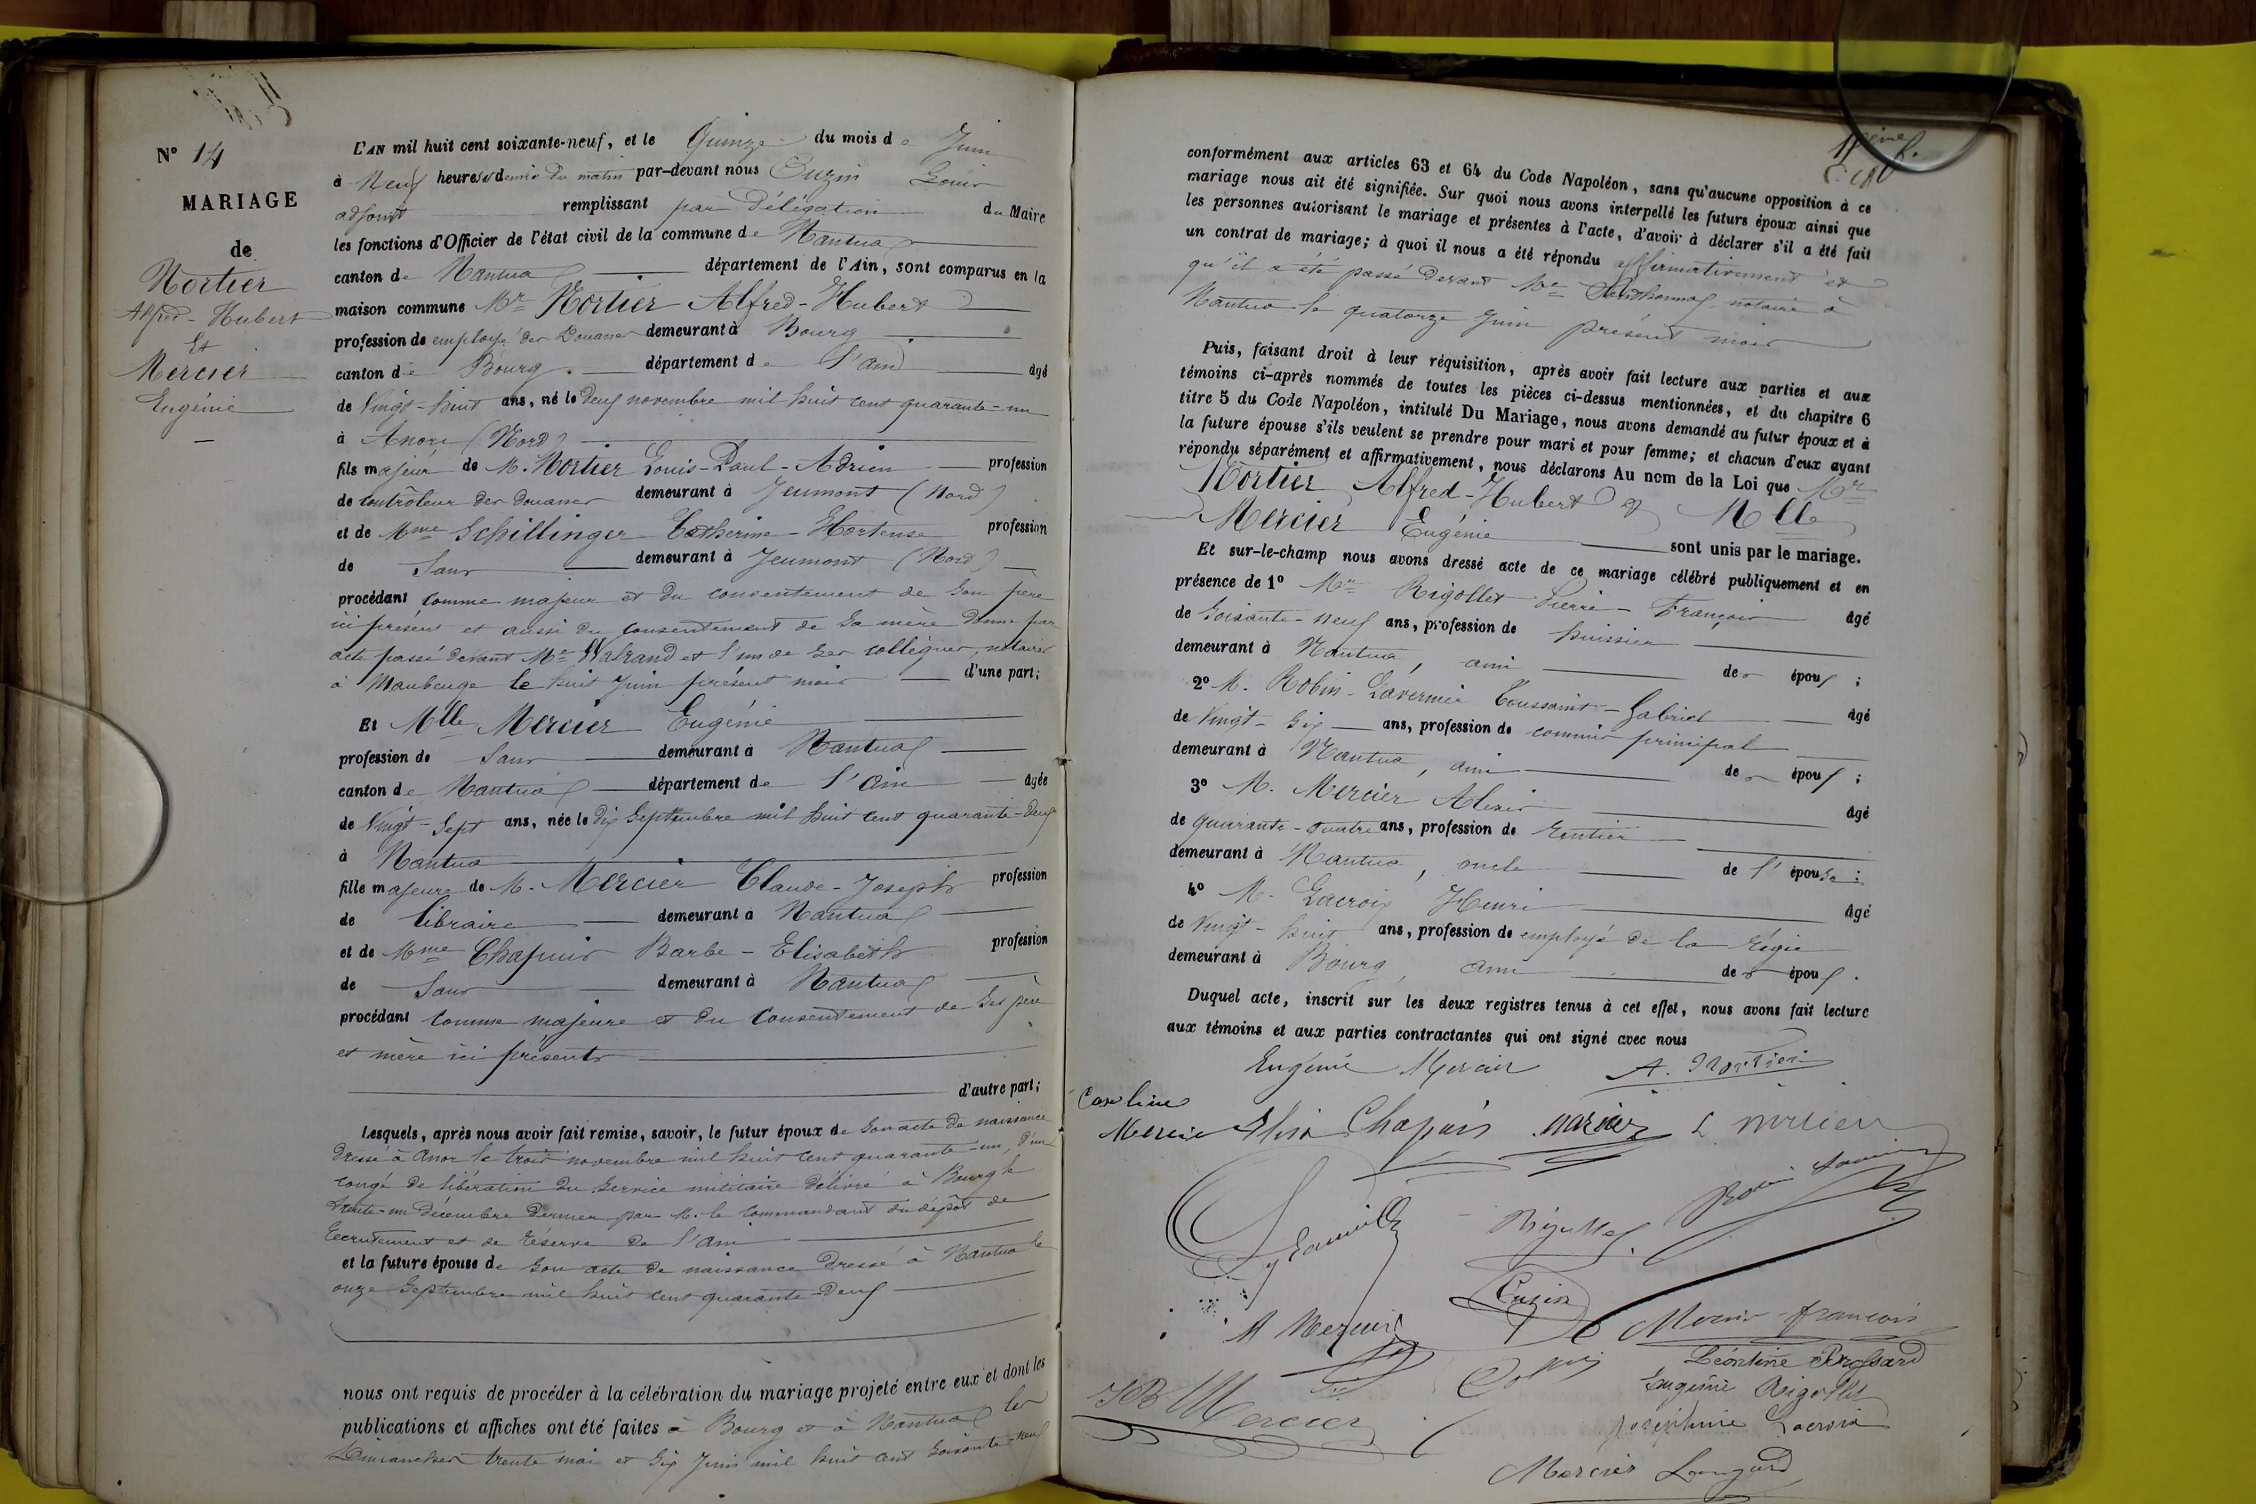 N° 14
MARIAGE
de
Nortier
Alfred-Hubert
Et
Mercier
Eugénie
L'AN mil huit cent soixante-neuf, et le Quinze du mois de Juin
à Neuf heures et demie du matin par-devant nous Cuzin Louis
adjoint remplissant par Délégation du Maire
les fonctions d'Officier de l'état civil de la commune de Nantua
canton de Nantua département de l'Ain, sont comparus en la
maison commune Mr Nortier Alfred-Hubert
profession de employé des Douanes demeurant à Bourg
canton de Bourg département de l'ain âgé
de Vingt-huit ans, né le deux novembre mil huit cent quarante-un
à Anor (Nord)
fils majeur de M. Nortier Louis-Paul-Adrien profession
de controleur des douanes demeurant à Jeumont (Nord)
et de Mme Schillinger Catherine-Hortense profession
de Sans demeurant à Jeumont (Nord)
procédant comme majeur et du consentement de son père
ici présent et aussi du consentement de sa mère donné par
acte passé devant Me Walrand et l'un de ses collègues, notaires
à Maubeuge le huit Juin présent mois d'une part;
Et Mlle Mercier Eugénie
profession de Sans demeurant à Nantua
canton de Nantua département de l'ain âgée
de Vingt-Sept ans, née le dix Septembre mil huit cent quarante-deux
à Nantua
fille majeure de M. Mercier Claude-Joseph profession
de libraire demeurant à Nantua
et de Mme Chapuis Barbe-Elisabeth profession
de Sans demeurant à Nantua
procédant comme majeure et du consentement de ses père
et mère ici présents
d'autre part;
Lesquels, après nous avoir fait remise, savoir, le futur époux de son acte de naissance
dressé à Anor le trois novembre mil huit cent quarante-un, d'un
congé de libération du service militaire délivré à Bourg le
trente-un Décembre dernier par M. le Commandant du dépôt de
recrutement et de réserve de l'ain
et la future épouse de son acte de naissance dressé à Nantua le
onze Septembre mil huit cent quarante-deux
nous ont requis de procéder à la célébration du mariage projeté entre eux et dont les
publications et affiches ont été faites à Bourg et à Nantua les
Dimanches trente mai et six Juin mil huit cent soixante-neuf
conformément aux articles 63 et 64 du Code Napoléon, sans qu'aucune opposition à ce
mariage nous ait été signifiée. Sur quoi nous avons interpellé les futurs époux ainsi que
les personnes autorisant le mariage et présentes à l'acte, d'avoir à déclarer s'il a été fait
un contrat de mariage; à quoi il nous a été répondu affirmativement et
qu'il a été passé devant Me notaire à
Nantua le quatorze Juin présent mois
Puis, faisant droit à leur réquisition, après avoir fait lecture aux parties et aux
témoins ci-après nommés de toutes les pièces ci-dessus mentionnées, et du chapitre 6
titre 5 du Code Napoléon, intitulé Du Mariage, nous avons demandé au futur époux et à
la future épouse s'ils veulent se prendre pour mari et pour femme; et chacun d'eux ayant
répondu séparément et affirmativement, nous déclarons Au nom de la Loi que Mr
Nortier Alfred-Hubert et Mlle
Mercier Eugénie sont unis par le mariage.
Et sur-le-champ nous avons dressé acte de ce mariage célébré publiquement et en
présence de 1° Mr Rigollet Pierre-François âgé
de Soixante-neuf ans, profession de huissier
demeurant à Nantua, ami des époux;
2° M. Robin-Lavernie Toussaint-Gabriel âgé
de Vingt-six ans, profession de commis principal
demeurant à Nantua, ami des époux;
3° M. Mercier Alexis âgé
de quarante-quatre ans, profession de rentier
demeurant à Nantua, oncle de l'épouse;
4° M. Lacroix Henri âgé
de Vingt-huit ans, profession de employé de la régie
demeurant à Bourg, ami des époux.
Duquel acte, inscrit sur les deux registres tenus à cet effet, nous avons fait lecture
aux témoins et aux parties contractantes qui ont signé avec nous
Eugénie Mercier A. Nortier
Caroline
Mercier Elisa Chapuis mercier L nortier
Robin Lavernie
Rigollet
Cuzin
A Mercier Mercier françois
Léontine Brossard
Eugénie Rigollet
JB Mercier
Joséphine Lacroix
Mercier